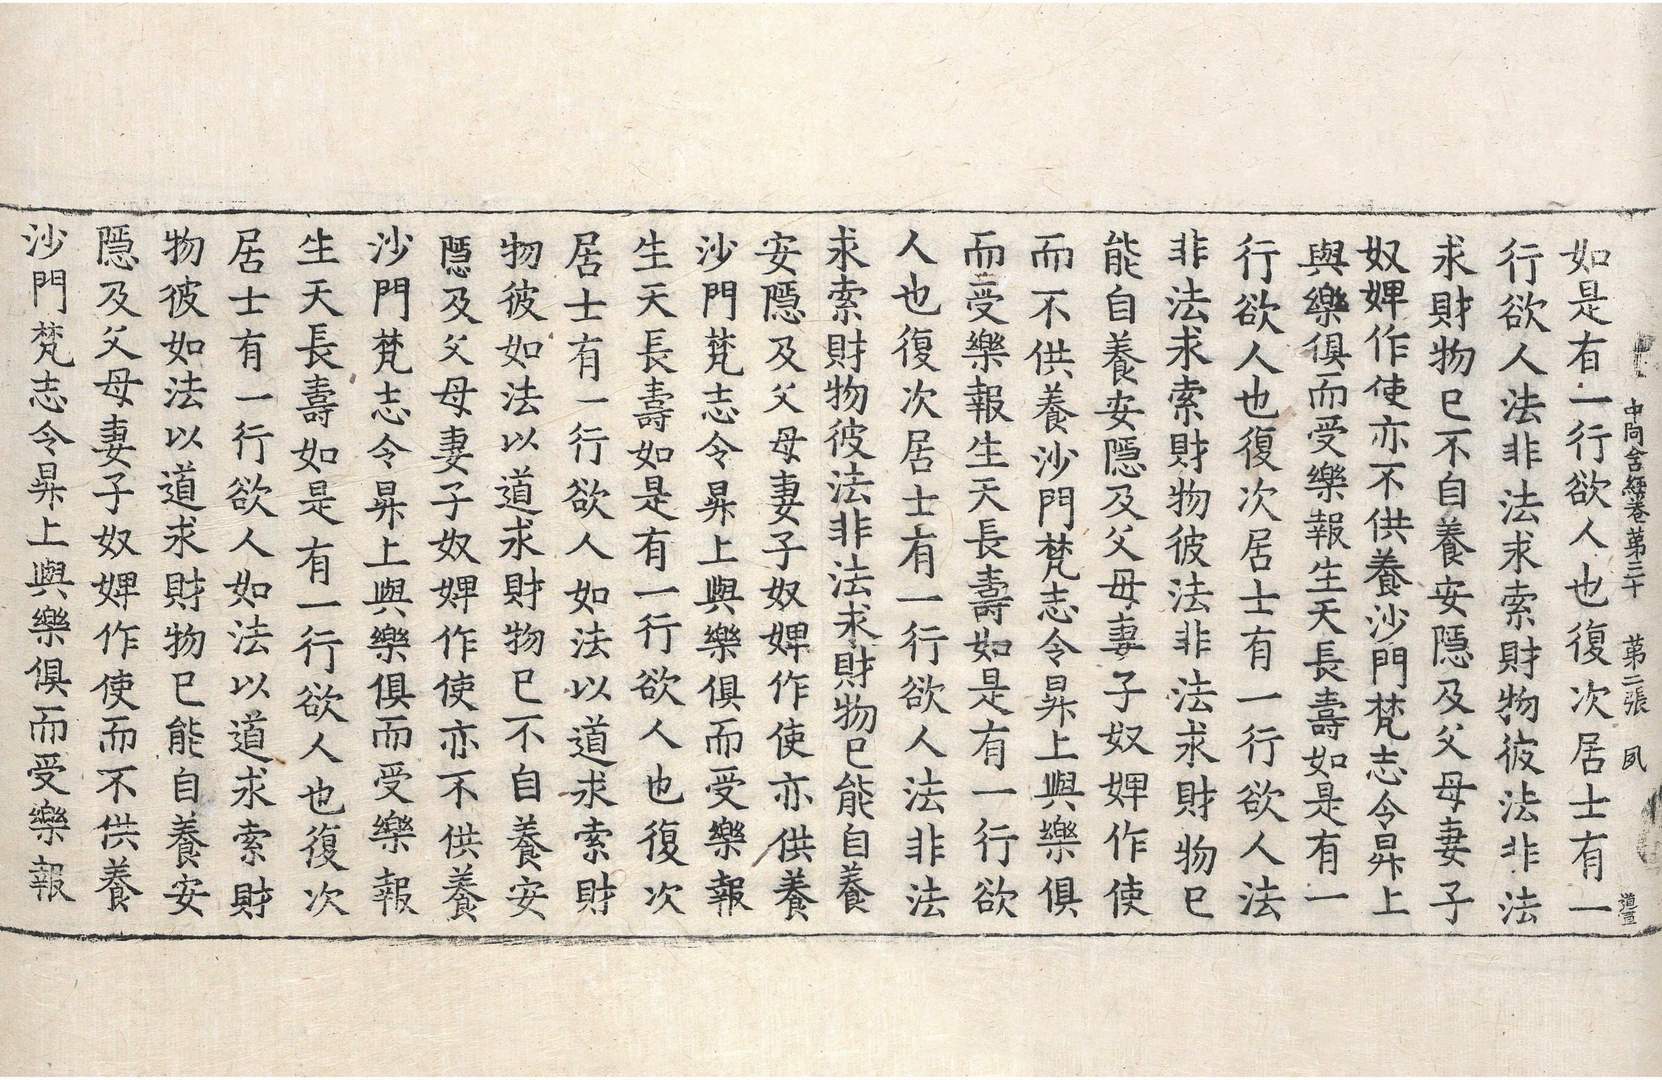 中阿含經卷第三十 第二張 夙
如是有一行欲人也復次居士有一
行欲人法非法求索財物彼法非法
求財物已不自養安隱及父母妻子
奴婢作使亦不供養沙門梵志令昇上
與樂俱而受樂報生天長壽如是有一
行欲人也復次居士有一行欲人法
非法求索財物彼法非法求財物已
能自養安隱及父母妻子奴婢作使
而不供養沙門梵志令昇上與樂俱
而受樂報生天長壽如是有一行欲
人也復次居士有一行欲人法非法
求索財物彼法非法求財物已能自養
安隱及父母妻子奴婢作使亦供養
沙門梵志令昇上與樂俱而受樂報
生天長壽如是有一行欲人也復次
居士有一行欲人如法以道求索財
物彼如法以道求財物已不自養安
隱及父母妻子奴婢作使亦不供養
沙門梵志令昇上與樂俱而受樂報
生天長壽如是有一行欲人也復次
居士有一行欲人如法以道求索財
物彼如法以道求財物已能自養安
隱及父母妻子奴婢作使而不供養
沙門梵志令昇上與樂俱而受樂報